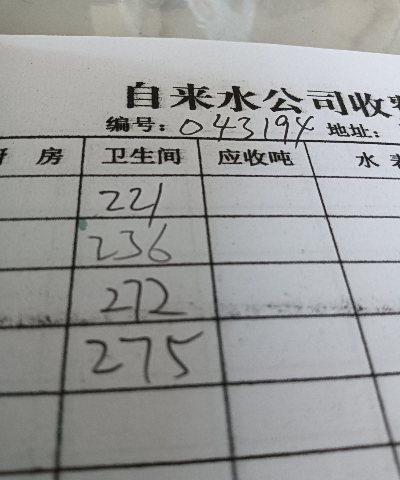 自来水公司收费
编号: 043194 地址:
厨房 卫生间 应收吨 水
221
236
272
275